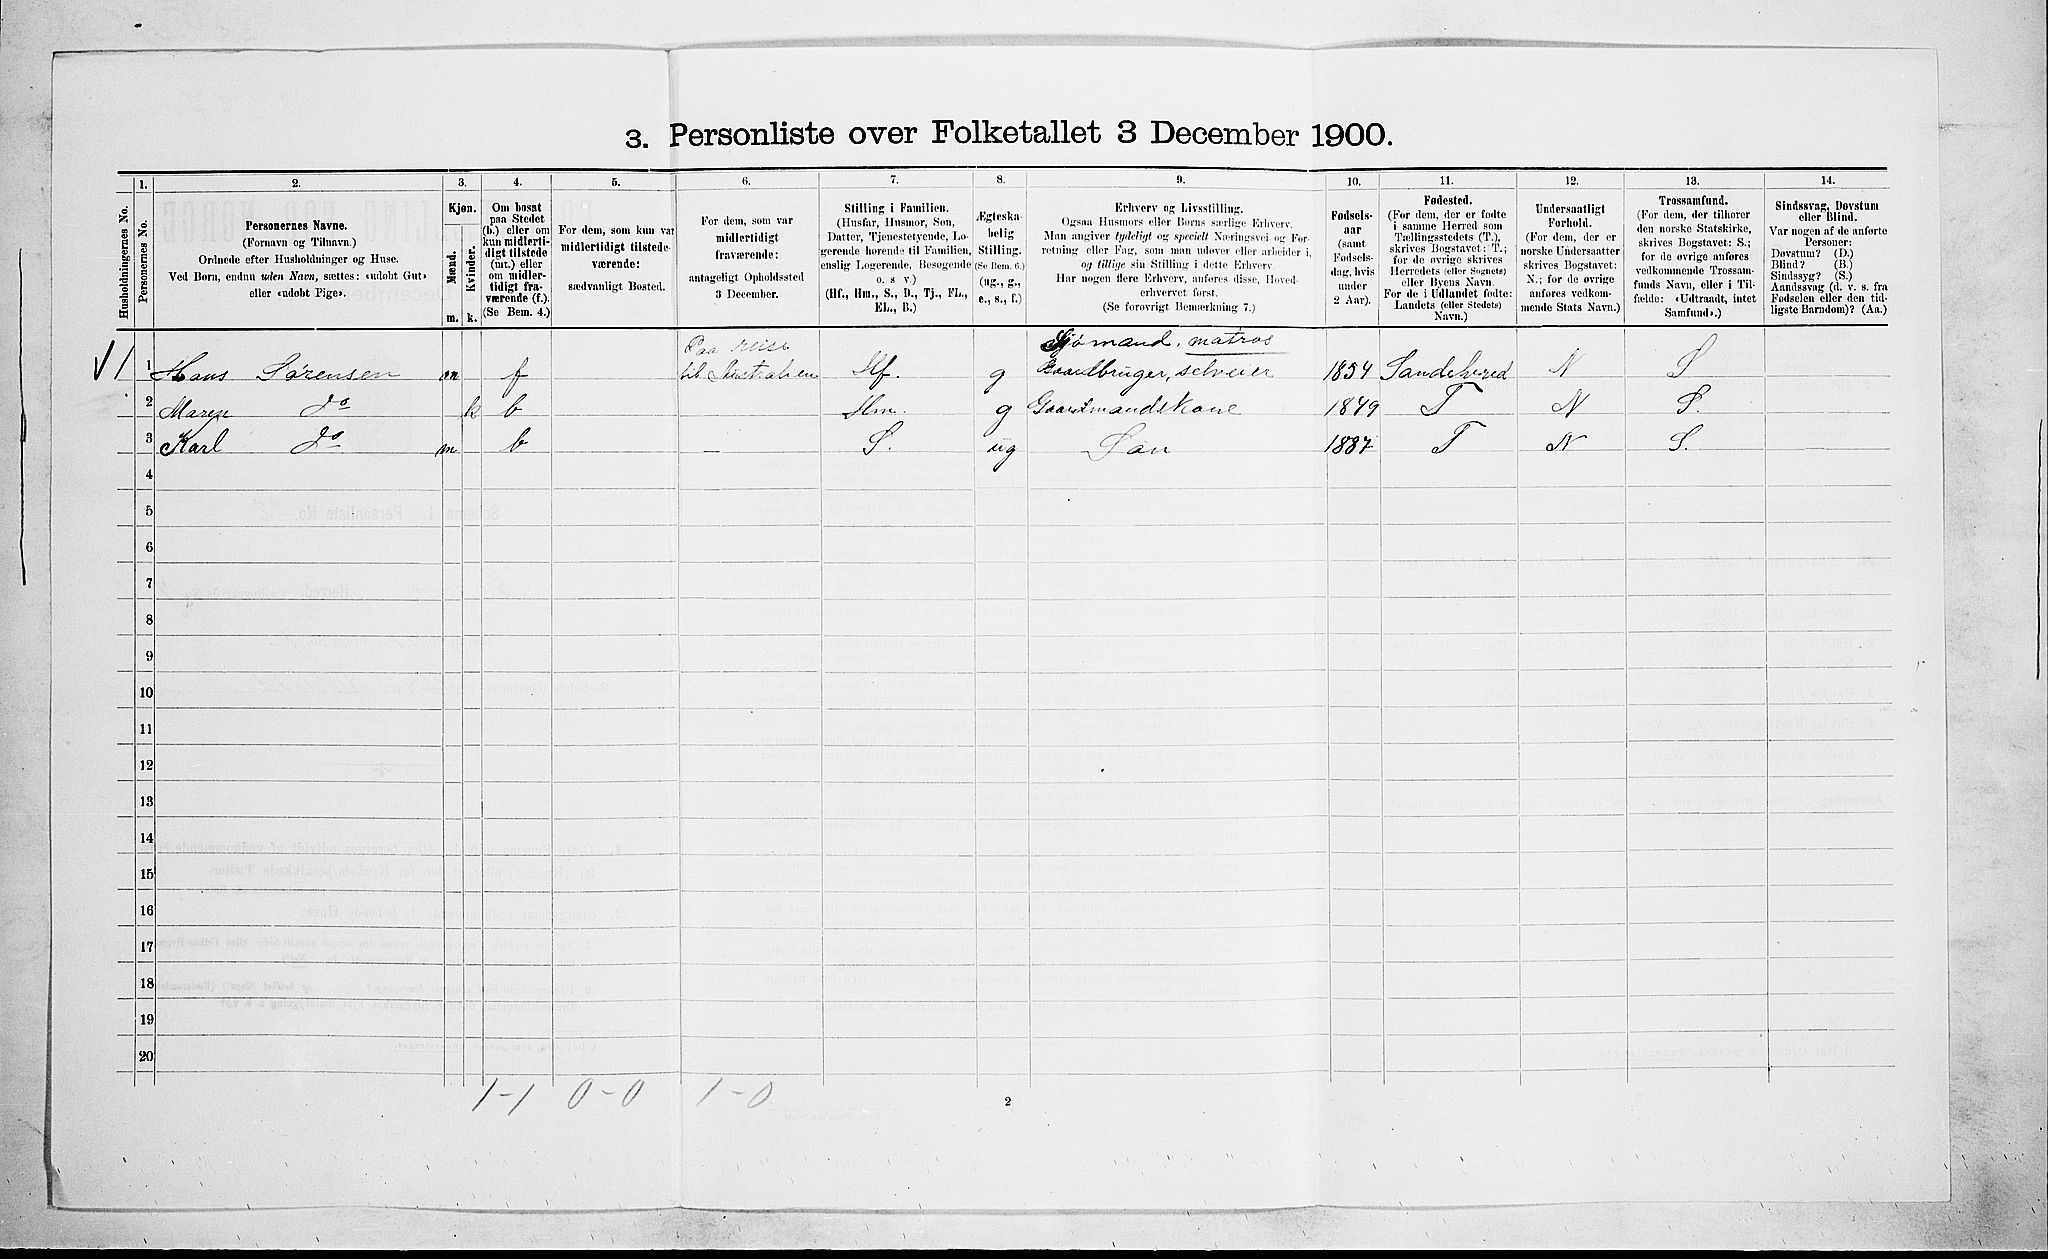 3. Personliste over Folketallet 3 December 1900.
1. 2. 3. 4. 5. 6. 7. 8. 9. 10. 11. 12. 13. 14.
Husholdningernes No.
Personernes No.
Personernes Navne.
(Fornavn og Tilnavn.)
Ordnede efter Husholdninger og Huse.
Ved Børn, endnu uden Navn, sættes: «udøbt Gut»
eller «udøbt Pige».
Kjøn.
Mænd.
Kvinder.
m. k.
Om bosat
paa Stedet
(b.) eller om
kun midlerti-
digt tilstede
(mt.) eller
om midler-
tidigt fra-
værende (f.).
(Se Bem. 4.)
For dem, som kun var
midlertidigt tilstede-
værende:
sædvanligt Bosted.
For dem, som var
midlertidigt
fraværende:
antageligt Opholdssted
3 December.
Stilling i Familien.
(Husfar, Husmor, Søn,
Datter, Tjenestetyende, Lo-
gerende hørende til Familien,
enslig Logerende, Besøgende
o. s. v.)
(Hf., Hm., S., D., Tj., FL.,
EL., B.)
Ægteska-
belig
Stilling.
(Se Bem. 6.)
(ug., g.,
e., s., f.)
Erhverv og Livsstilling.
Ogsaa Husmors eller Børns særlige Erhverv.
Man angiver tydeligt og specielt Næringsvei og For-
retning eller Fag, som man udøver eller arbeider i,
og tillige sin Stilling i dette Erhverv.
Har nogen flere Erhverv, anføres disse, Hoved-
erhvervet først.
(Se forøvrigt Bemærkning 7.)
Fødsels-
aar
(samt
Fødsels-
dag, hvis
under
2 Aar).
Fødested.
(For dem, der er fødte
i samme Herred som
Tællingsstedets (T.),
skrives Bogstavet: T.;
for de øvrige skrives
Herredets (eller Sognets)
eller Byens Navn.
For de i Udlandet fødte:
Landets (eller Stedets)
Navn.)
Undersaatligt
Forhold.
(For dem, der er
norske Undersaatter
skrives Bogstavet:
N.; for de øvrige
anføres vedkom-
mende Stats Navn.)
Trossamfund.
(For dem, der tilhører
den norske Statskirke,
skrives Bogstavet: S.;
for de øvrige anføres
vedkommende Trossam-
funds Navn, eller i Til-
fælde: «Udtraadt, intet
Samfund».)
Sindssvag, Døvstum
eller Blind.
Var nogen af de anførte
Personer:
Døvstum? (D.)
Blind? (B.)
Sindssyg? (S.)
Aandssvag (d. v. s. fra
Fødselen eller den tid-
ligste Barndom)? (Aa.)
Paa reise Sjømand, matros
1 1 Hans Sørensen m f til Australien Hf. g Gaardbruger, selveier 1854 Sandeherred N S
2 Maren do k b Hm. g Gaardmandskone 1849 T N S.
3 Karl do m b — S. ug Søn 1887 T N S.
4
5
6
7
8
9
10
11
12
13
14
15
16
17
18
19
20
1-1 0-0 1-0
2